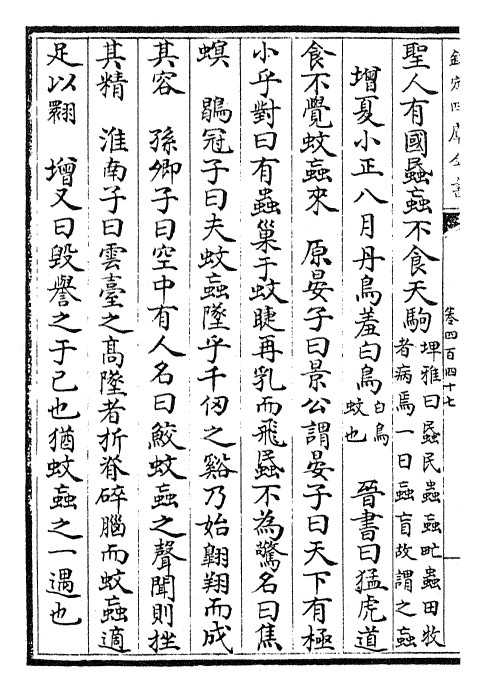 欽定四庫全書
卷四百四十七
聖人有國蟁蝱不食天駒埤雅曰蟁民蟲蝱甿蟲田牧
者病焉一曰蝱盲故謂之蝱
增夏小正八月丹鳥羞白鳥白鳥
蚊也
晉書曰猛虎道
食不覺蚊蝱來 原晏子曰景公謂晏子曰天下有極
小乎對曰有蟲巢于蚊睫再乳而飛蟁不為驚名曰焦
螟 鶡冠子曰夫蚊蝱墜乎千仞之谿乃始翺翔而成
其容 孫卿子曰空中有人名曰鮫蚊蝱之聲聞則挫
其精 淮南子曰雲臺之高墜者折脊碎腦而蚊蝱適
足以翾 增又曰毀譽之于己也猶蚊蝱之一遇也